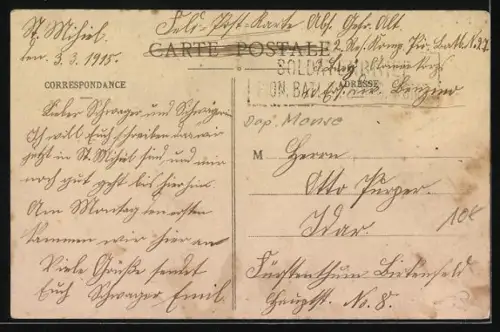 St. Mihiel
den 3.3.1915.
Feld-Post-Karte Abs. Gefr. Alt.
2. Res. Komp. Pio. Batt. No.
CARTE POSTALE
SOLD
ADRESSE
CORRESPONDANCE
Lieber Schwager und Schwägerin
Ich will Euch schreiben das wir
jetzt in St. Mihiel sind, und mir
noch gut geht bis hierhin.
Am Montag den ersten
kammen wir hier an
Viele Grüße sendet
Euch Schwager Emil.
dep. Meuse
M Herrn
Otto Purper.
Idar.
Fürstenthum Birkenfeld
Hauptst. No. 8.
10€